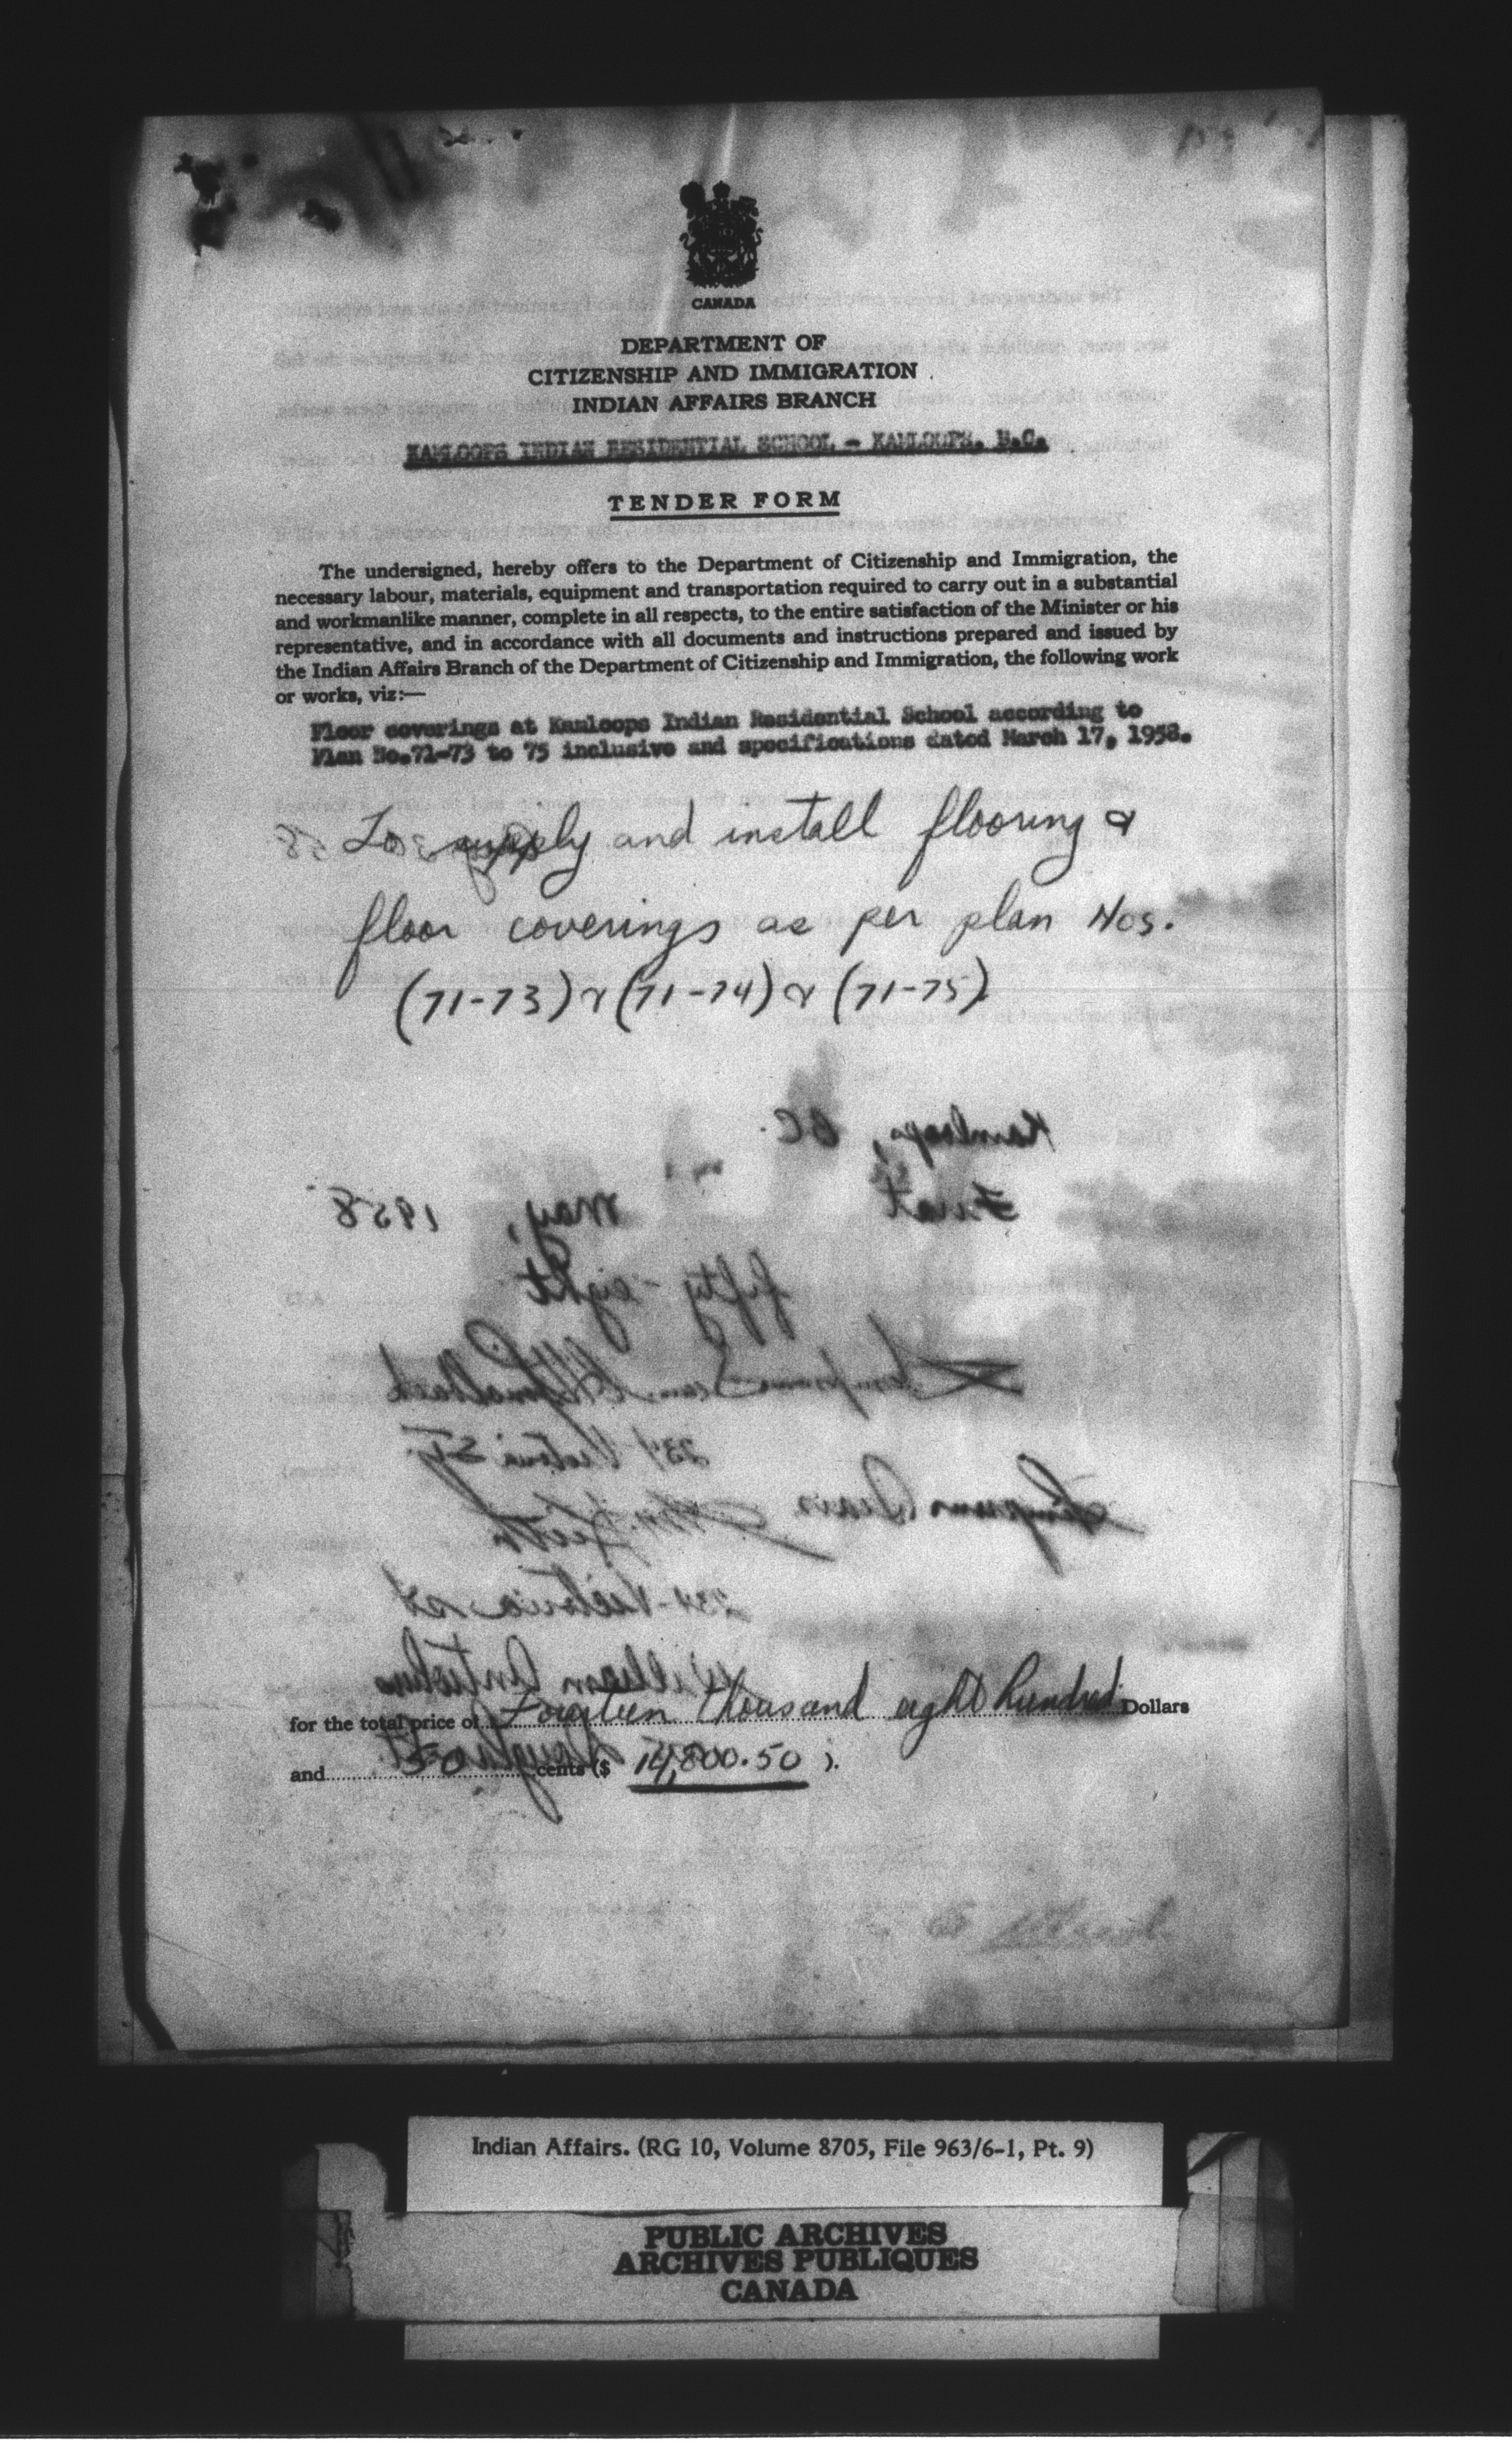 CANADA
DEPARTMENT OF
CITIZENSHIP AND IMMIGRATION
INDIAN AFFAIRS BRANCH
KAMLOOPS INDIAN RESIDENTIAL SCHOOL - KAMLOOPS, B.C.
TENDER FORM
The undersigned, hereby offers to the Department of Citizenship and Immigration, the
necessary labour, materials, equipment and transportation required to carry out in a substantial
and workmanlike manner, complete in all respects, to the entire satisfaction of the Minister or his
representative, and in accordance with all documents and instructions prepared and issued by
the Indian Affairs Branch of the Department of Citizenship and Immigration, the following work
or works, viz:—
Floor coverings at Kamloops Indian Residential School according to
Plan No.71-73 to 75 inclusive and specifications dated March 17, 1958.
To supply and install flooring &
floor coverings as per plan Nos.
(71-73) & (71-74) & (71-75)
Kamloops, BC.
First May, 1958
fifty-eight
234 Victoria St.
Simpsons Sears
234 Victoria St
William
for the total price of Fourteen thousand eight hundred Dollars
and 50 cents ($ 14,800.50 ).
Indian Affairs. (RG 10, Volume 8705, File 963/6-1, Pt. 9)
PUBLIC ARCHIVES
ARCHIVES PUBLIQUES
CANADA